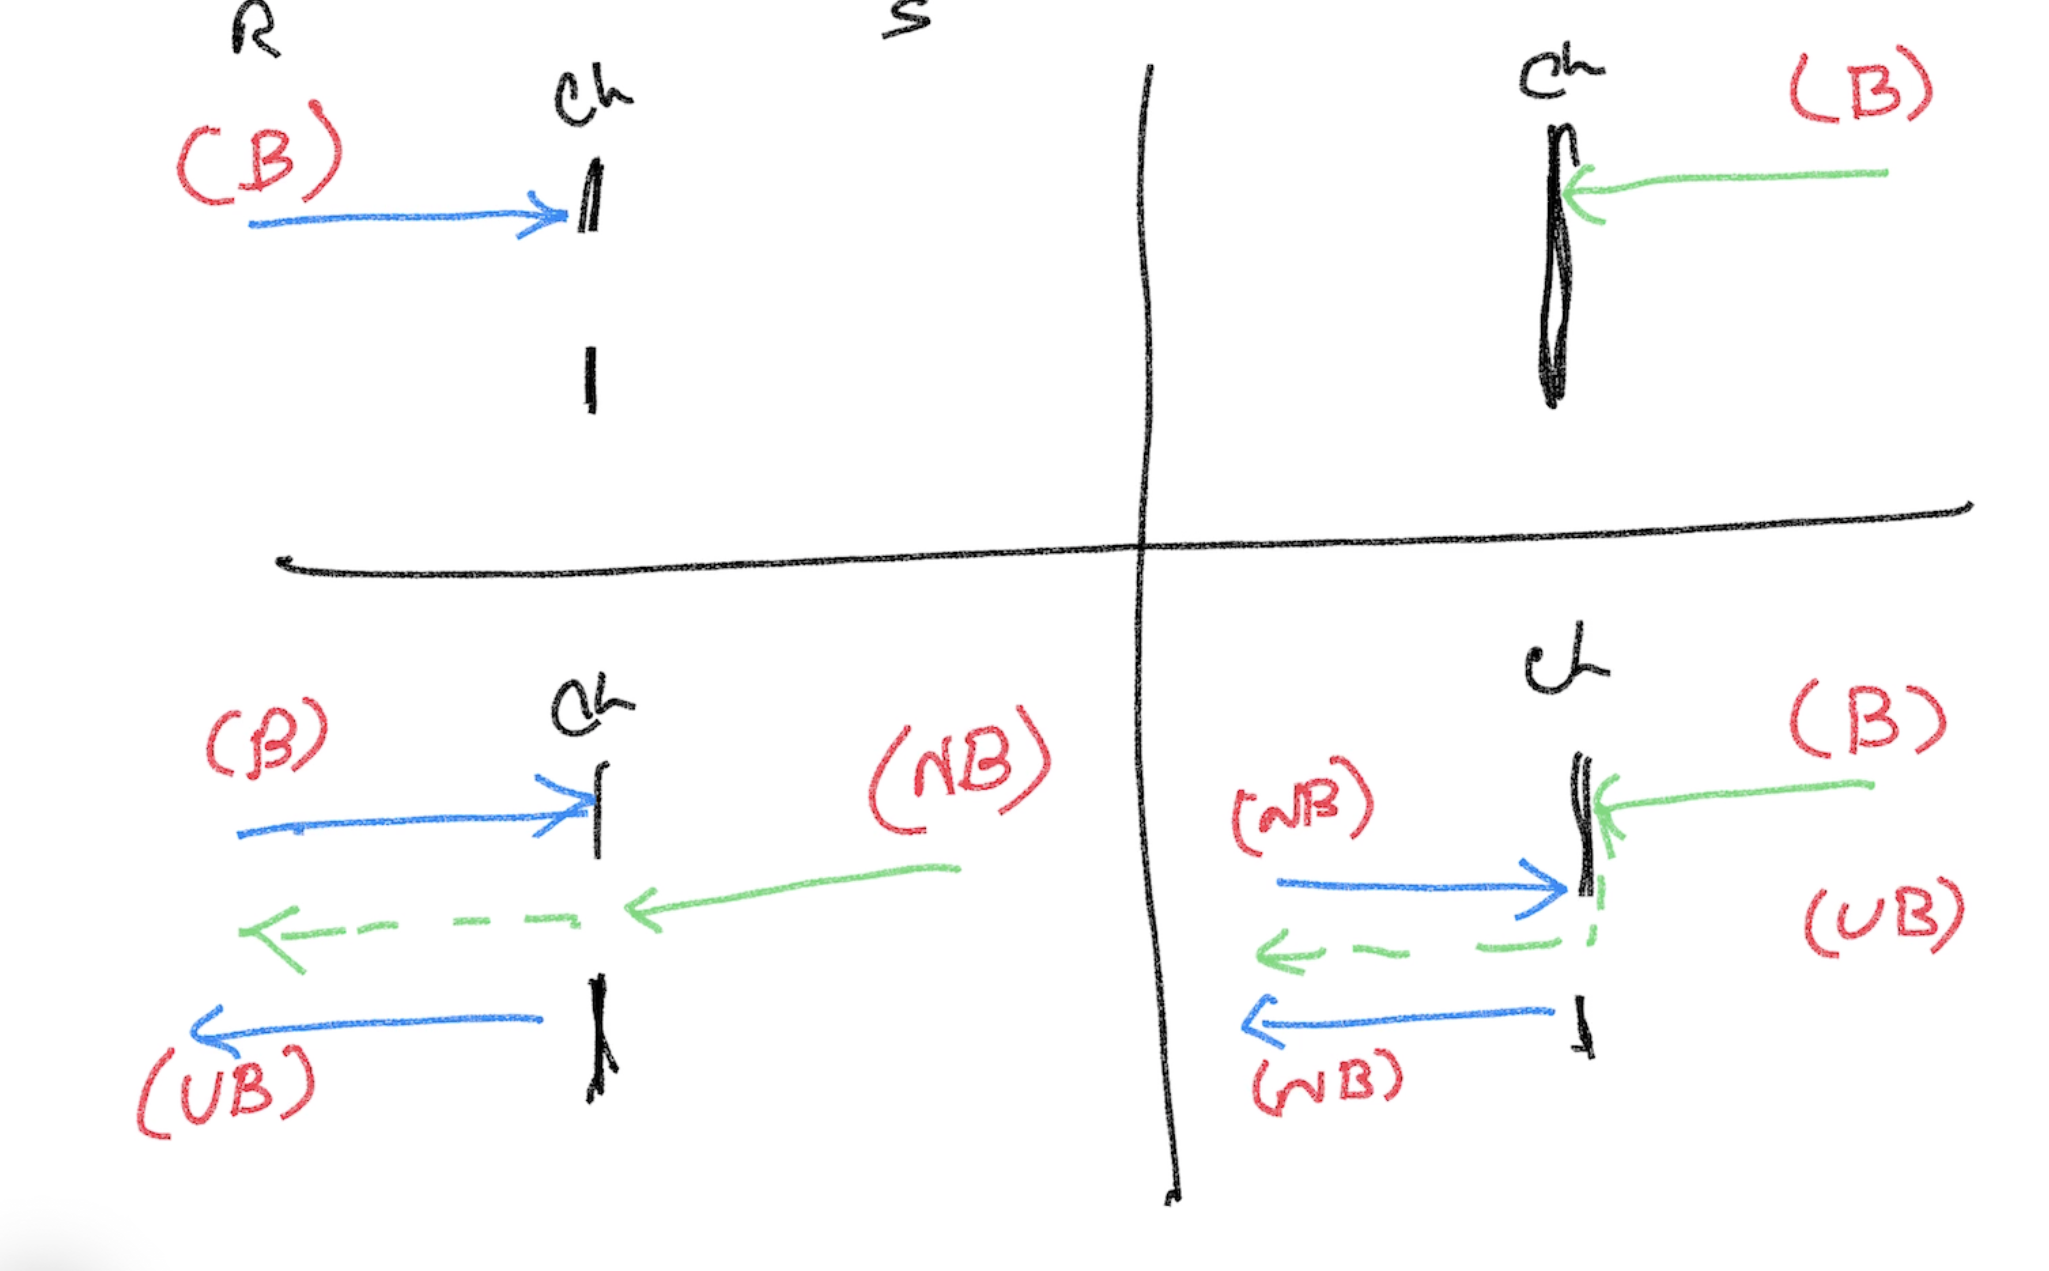 R S
Ch
(B)
Ch (B)
Ch
(B)
(NB)
(UB)
Ch
(B)
(NB)
(UB)
(NB)